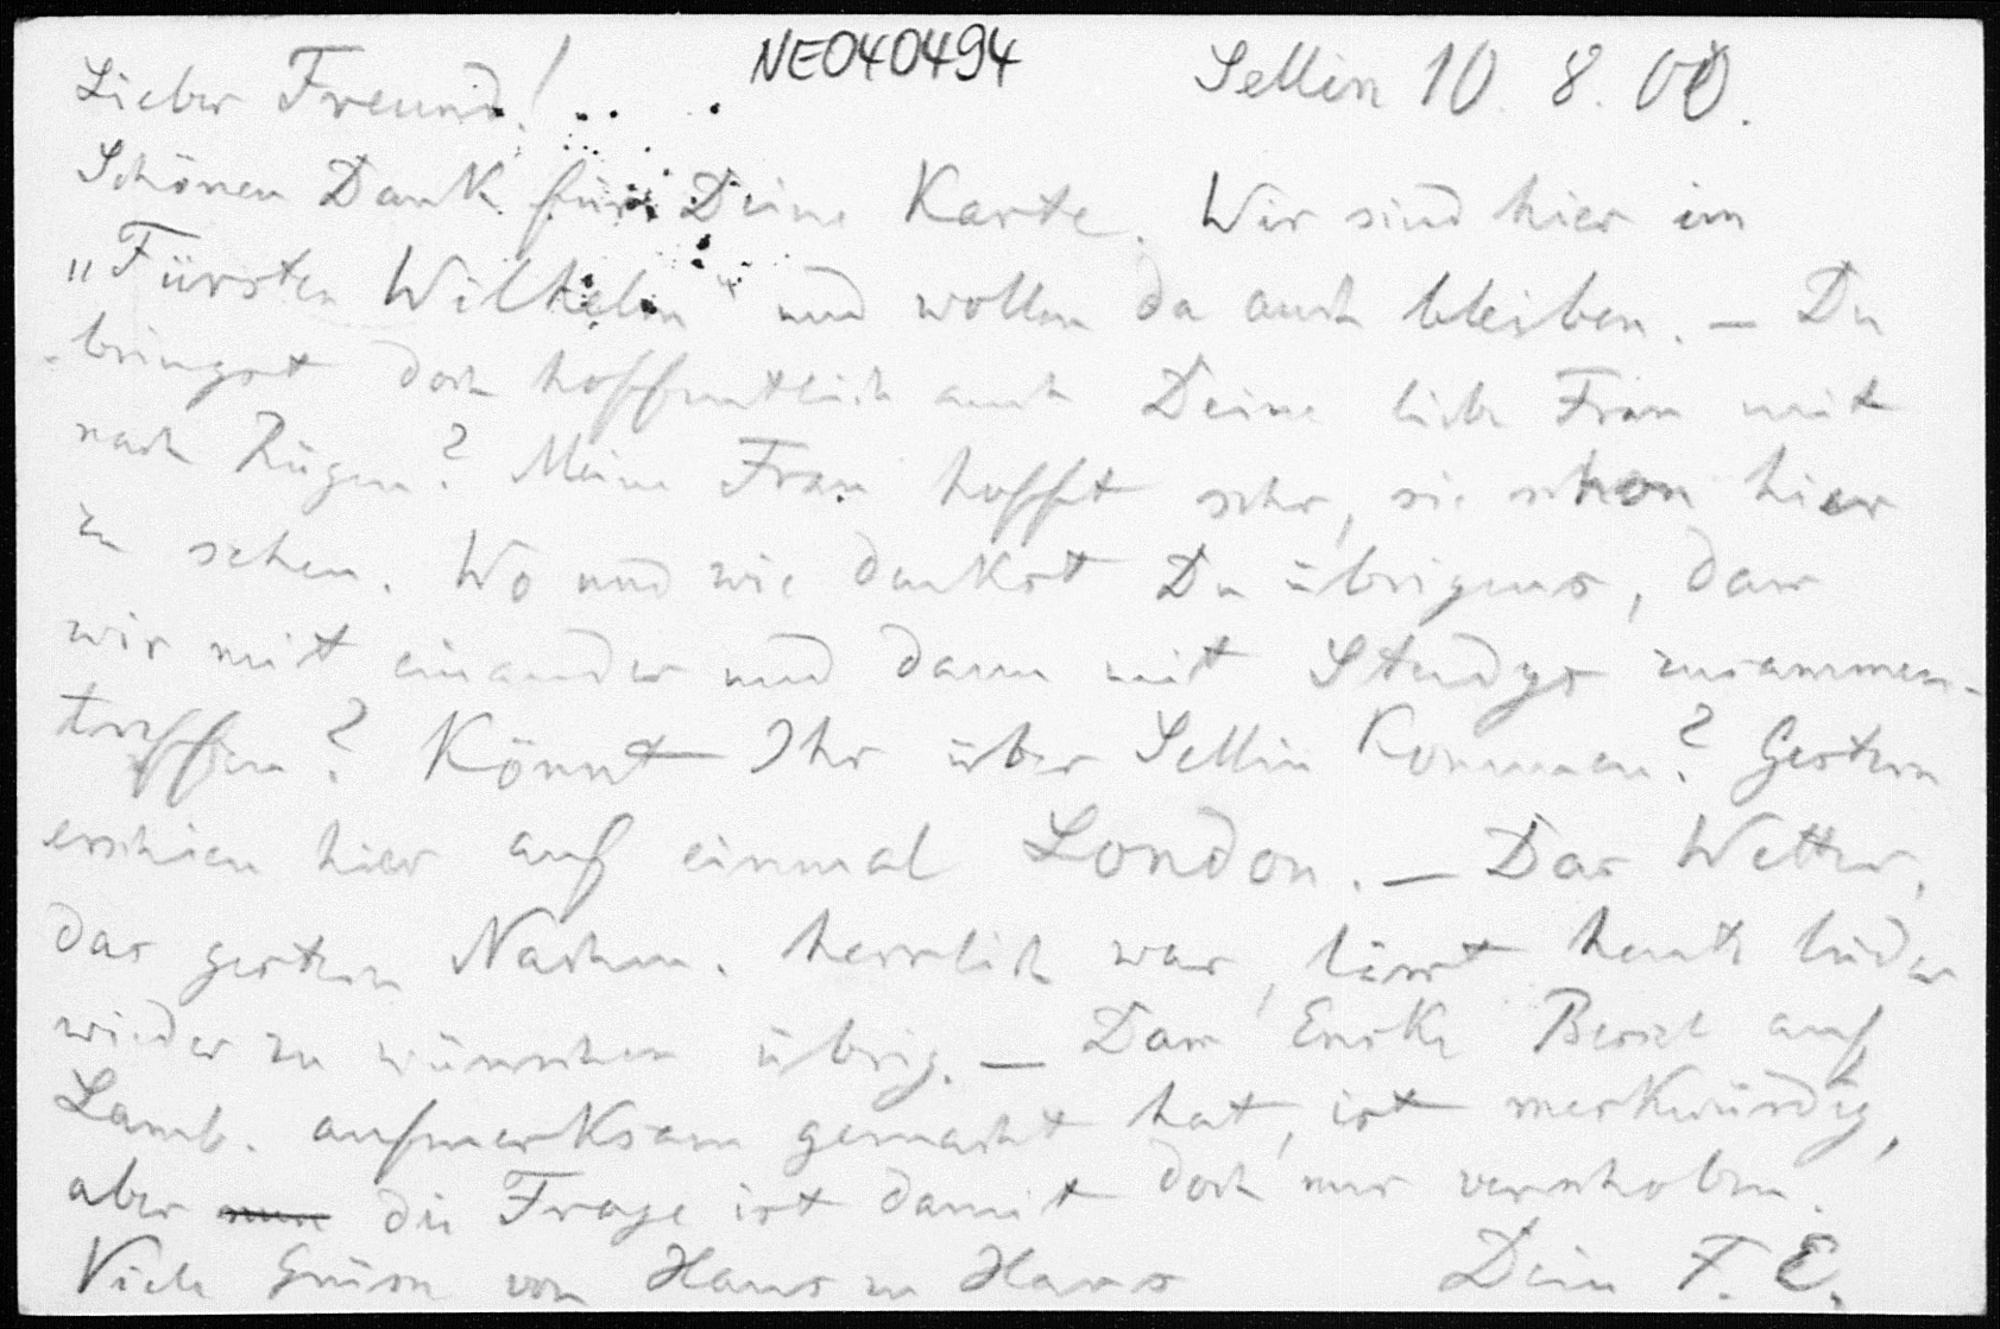 NE040494
Sellin 10. 8. 00.
Lieber Freund!
Schönen Dank für Deine Karte. Wir sind hier im
„Fürsten Wilhelm" und wollen da auch bleiben. – Du
bringst doch hoffentlich auch Deine liebe Frau mit
nach Rügen? Meine Frau hofft sehr, sie schon hier
zu sehen. Wo und wie denkst Du übrigens, dass
wir mit einander und dann mit Studys zusammen-
treffen? Könnt Ihr über Sellin kommen? Gestern
erschien hier auf einmal London. – Das Wetter,
das gestern Nachm. herrlich war, lässt heute leider
wieder zu wünschen übrig. – Dass Encke Bessel auf
Lamb. aufmerksam gemacht hat, ist merkwürdig,
aber die Frage ist damit doch nur verschoben.
Viele Grüsse von Haus zu Haus Dein F. E.